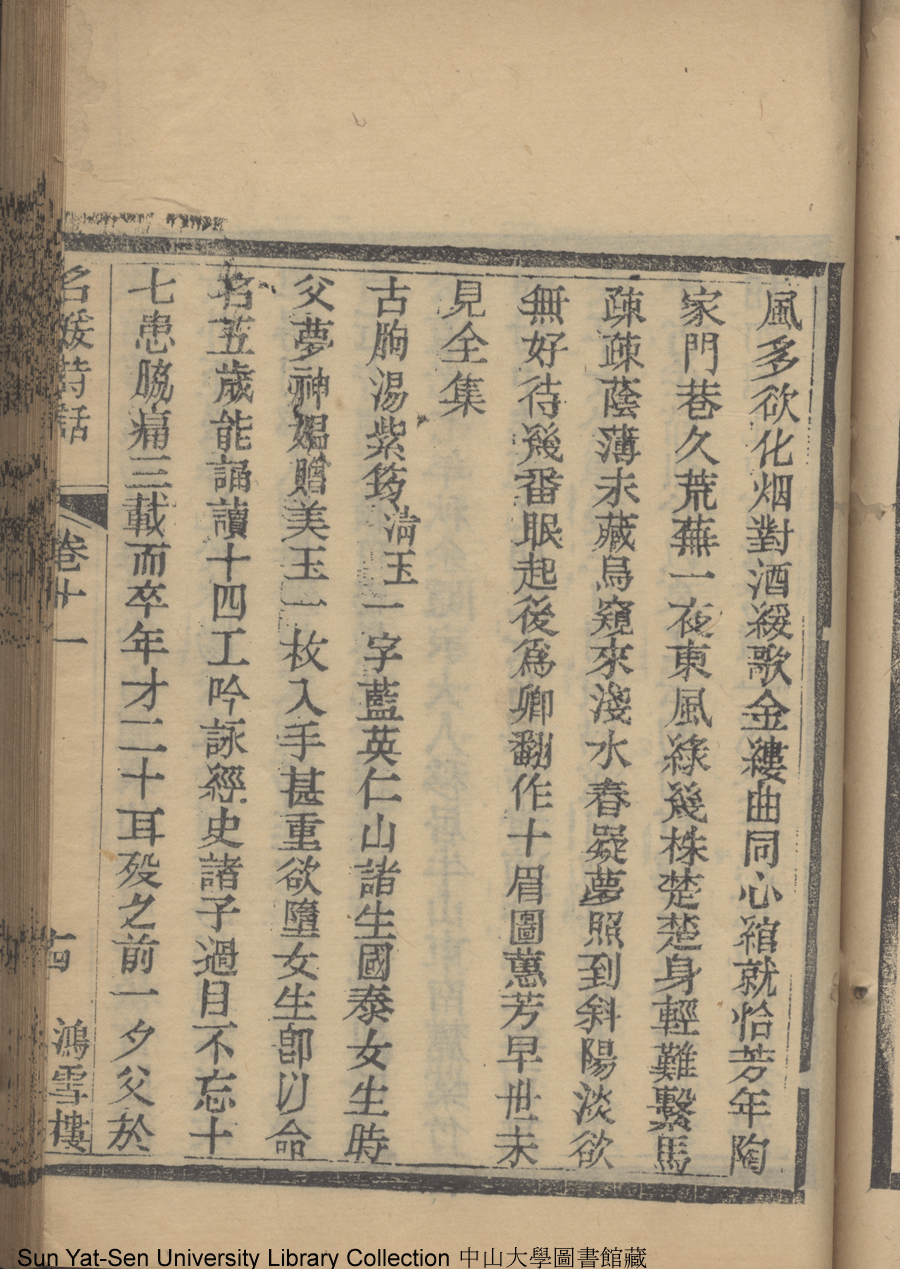 風多欲化烟對酒緩歌金縷曲同心綰就恰芳年陶
家門巷久荒蕪一夜東風綠幾株楚楚身輕難繫馬
疎疎蔭薄未藏烏窺來淺水春疑夢照到斜陽淡欲
無好待幾番眠起後爲卿翻作十眉圖蕙芳早世未
見全集
古朐湯紫筠清玉一字藍英仁山諸生國泰女生時
父夢神嫗贈美玉一枚入手甚重欲墮女生卽以命
名五歲能誦讀十四工吟詠經史諸子過目不忘十
七患脇痛三載而卒年才二十耳歿之前一夕父於
名媛詩話 卷十一 十四 鴻雪樓
Sun Yat-Sen University Library Collection 中山大學圖書館藏